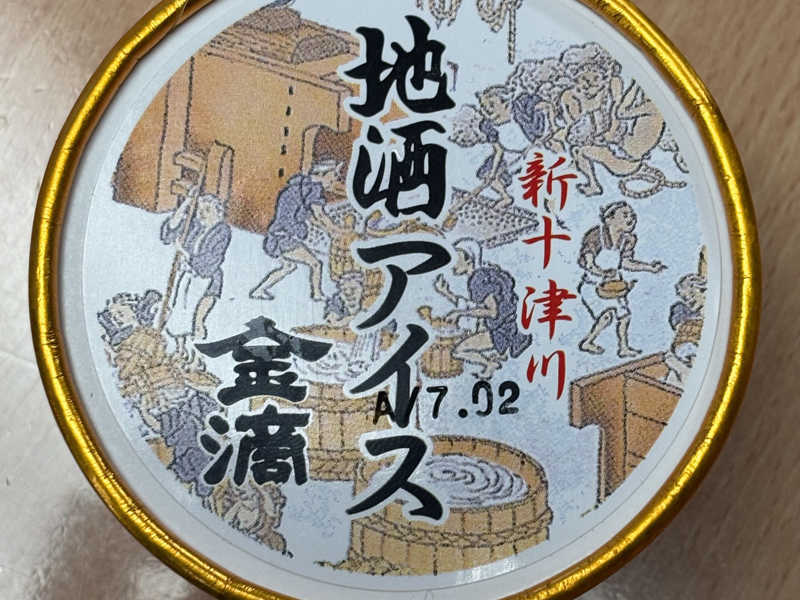 新十津川
地酒アイス
金滴
A/7.02